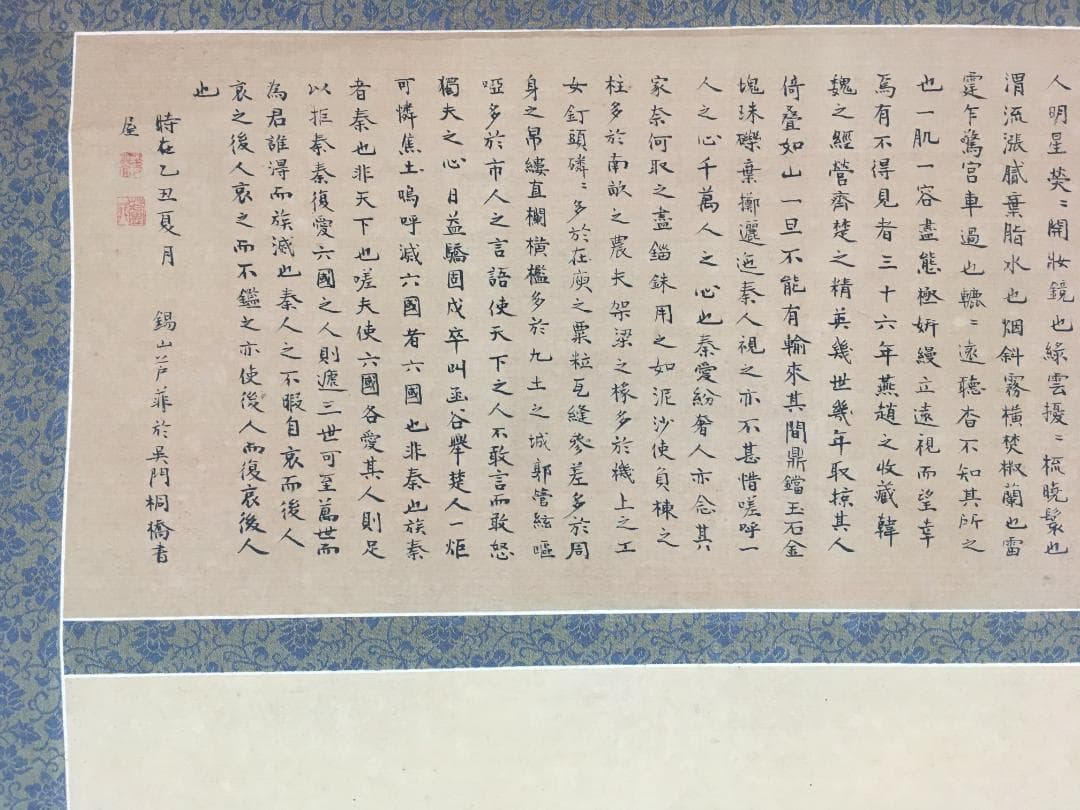 人明星熒〻開妝鏡也綠雲擾〻梳曉鬟也
渭流漲膩棄脂水也烟斜霧橫焚椒蘭也雷
霆乍驚宮車過也轆〻遠聽杳不知其所之
也一肌一容盡態極妍縵立遠視而望幸
焉有不得見者三十六年燕趙之收藏韓
魏之經營齊楚之精英幾世幾年取掠其人
倚疊如山一旦不能有輸來其間鼎鐺玉石金
塊珠礫棄擲邐迤秦人視之亦不甚惜嗟呼一
人之心千萬人之心也秦愛紛奢人亦念其
家奈何取之盡錙銖用之如泥沙使負棟之
柱多於南畝之農夫架梁之椽多於機上之工
女釘頭磷〻多於在庾之粟粒瓦縫參差多於周
身之帛縷直欄橫檻多於九土之城郭管絃嘔
啞多於市人之言語使天下之人不敢言而敢怒
獨夫之心日益驕固戍卒叫函谷舉楚人一炬
可憐焦土嗚呼滅六國者六國也非秦也族秦
者秦也非天下也嗟夫使六國各愛其人則足
以拒秦秦復愛六國之人則遞三世可至萬世而
為君誰得而族滅也秦人之不暇自哀而後人
哀之後人哀之而不鑑之亦使後人而復哀後人
也
時在乙丑夏月 錫山芦菲於吳門桐橋書
屋